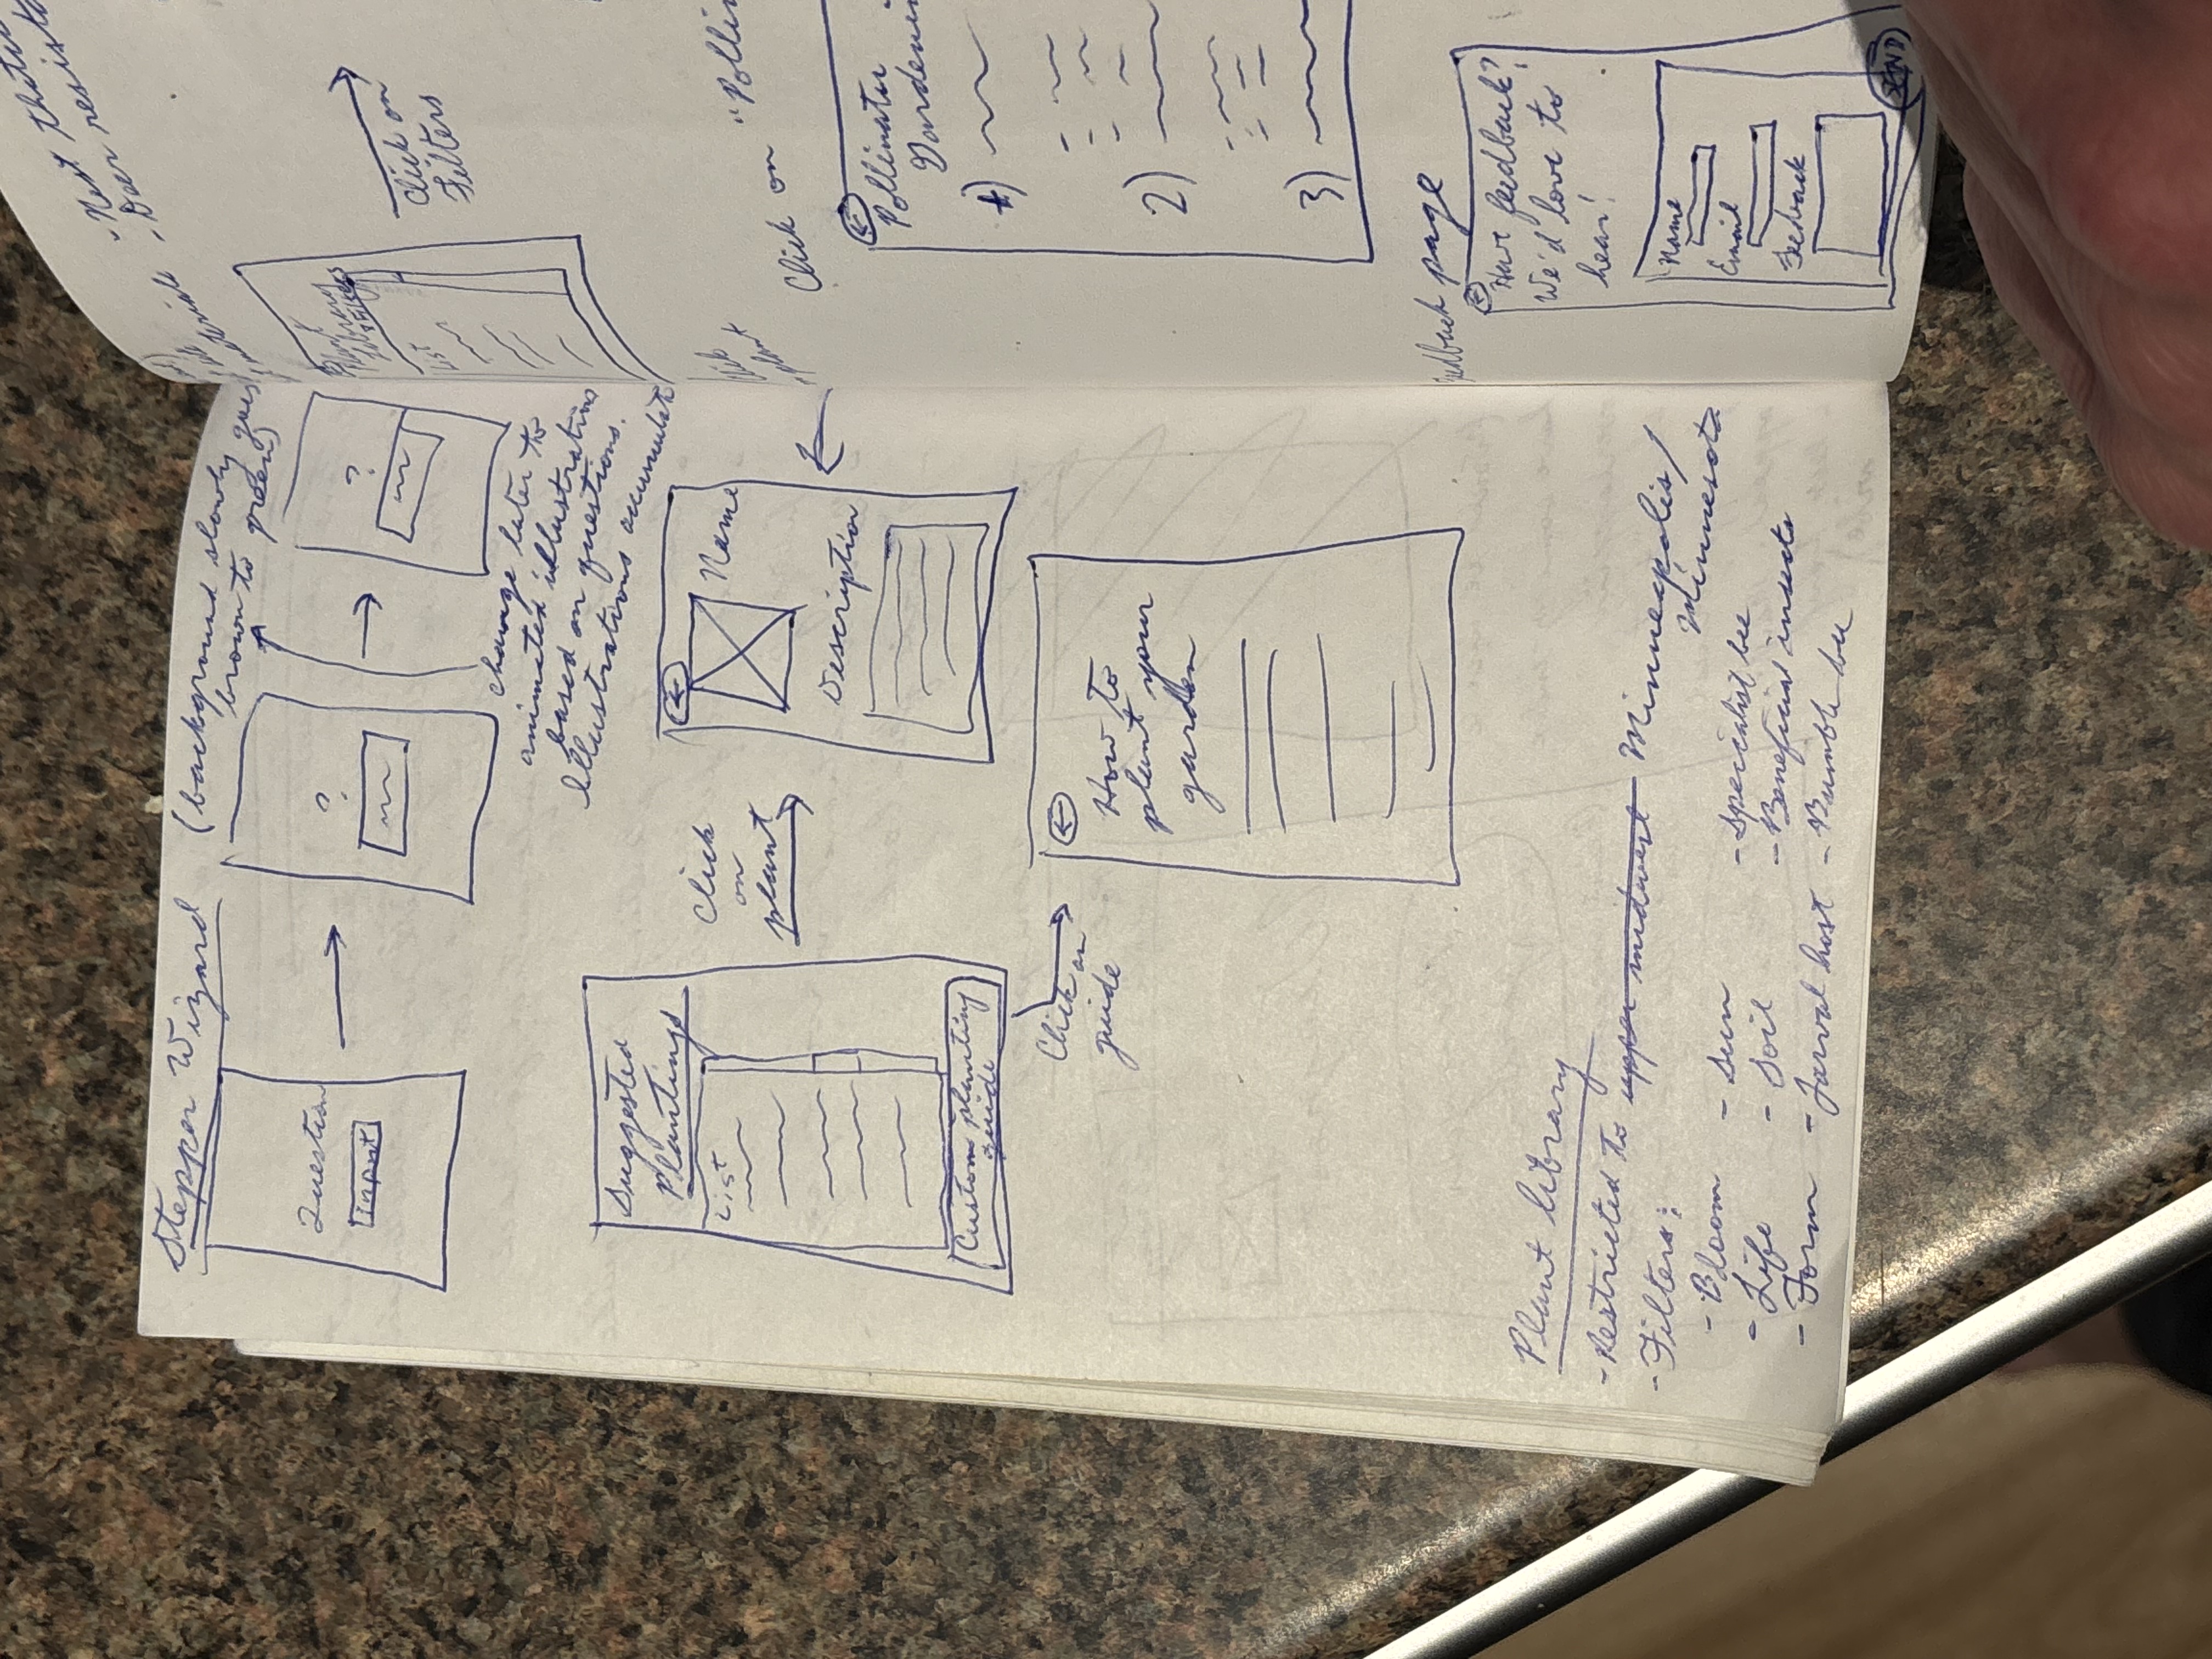 Stepper Wizard
(background slowly goes
brown to green)
Question
Input
?
?
change later to
animated illustrations
based on questions.
Illustrations accumulate
Suggested
Plantings
List
Custom planting
guide
Click
on
plant
Name
Description
Click on
guide
How to
plant your
garden
Plant library
- Restricted to upper midwest Minneapolis/
Minnesota
- Filters:
- Bloom - Sun - Specialist bee
- Life - Soil - Beneficial insects
- Form - Larval host - Bumble bee
- Nest
- Deer
materials
Plant
Library
List
Click on
Filters
Click
plant
Click on
Pollinator
1)
2)
3)
page
Have feedback?
We'd love to
hear!
Name
Email
Feedback
SEND